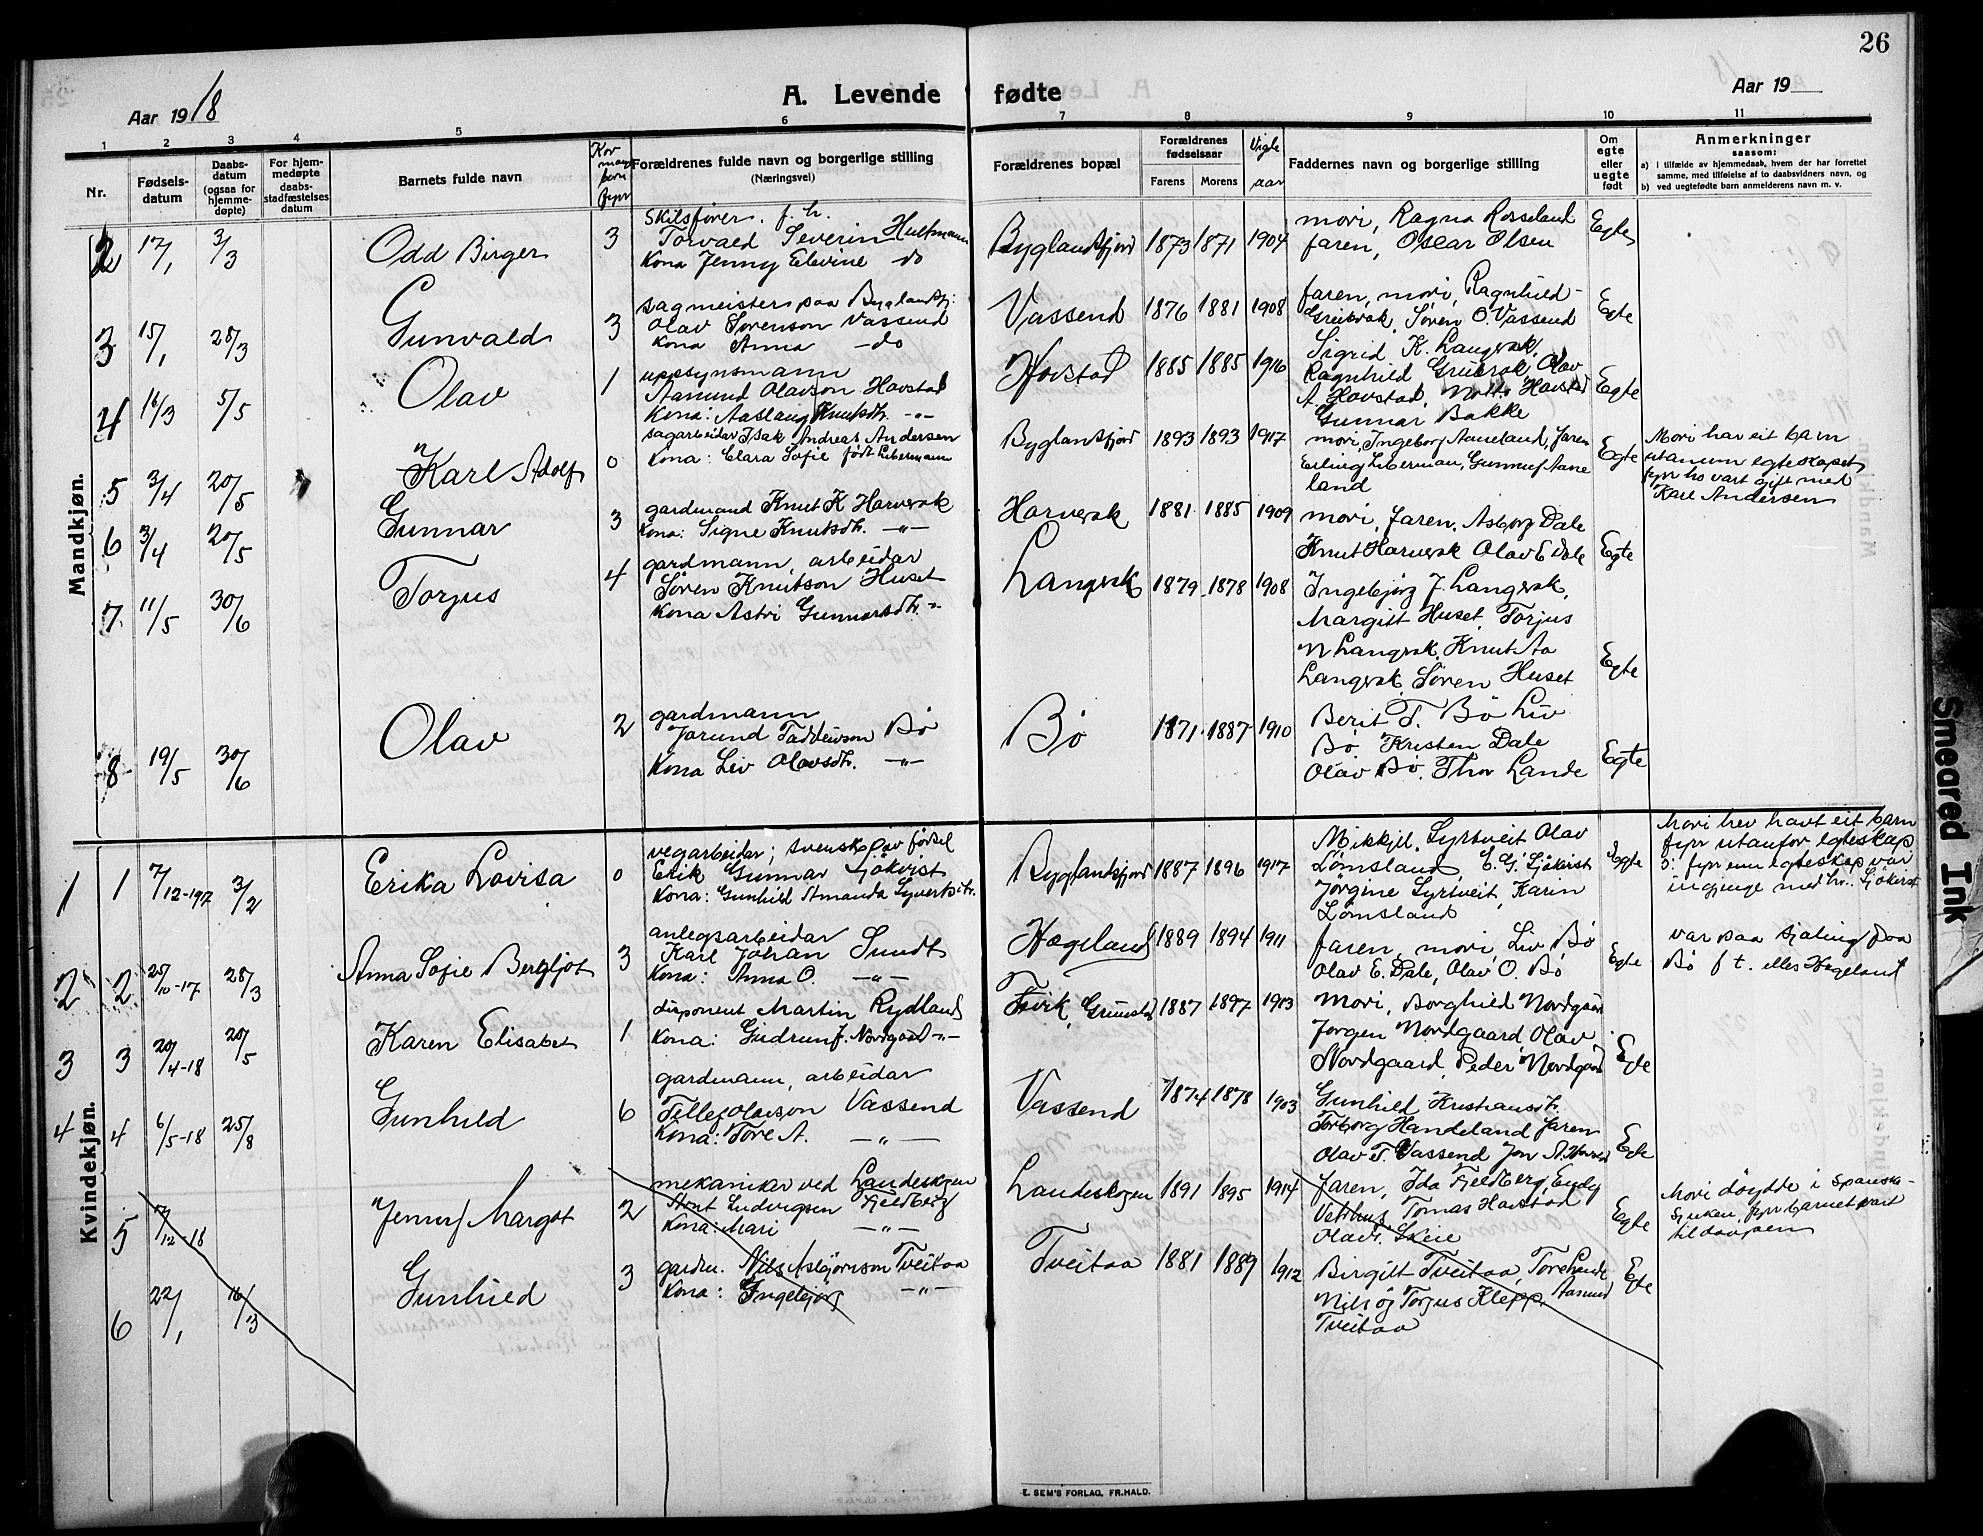 26
Aar 1918
A. Levende fødte
Aar 19
1 2 3 4 5 6 7 8 9 10 11
Nr.
Fødsels-
datum
Daabs-
datum
(ogsaa for
hjemme-
døpte)
For hjem-
medøpte
daabs-
stadfæstelses
datum
Barnets fulde navn
Kor
mange
born
fyrr
Forældrenes fulde navn og borgerlige stilling
(Næringsvei)
Forældrenes bopæl
Forældrenes
fødselsaar
Farens Morens
Vigle
aar
Faddernes navn og borgerlige stilling
Om
egte
eller
uegte
født
Anmerkninger
saasom:
a) i tilfælde av hjemmedaab, hvem der har forrettet
samme, med tilføielse af to daabsvidners navn, og
b) ved uegtefødte barn anmelderens navn m. v.
Mandkjøn.
2 17/1 3/3 Odd Birger 3
Skilsfører. f. h.
Torvald Severin Hultmann
Kona Jenny Elevine do
Byglandsfjord 1873 1871 1904
mori, Ragna Rosseland
faren, Oscar Olsen
Egte
3 15/1 28/3 Gunvald 3
sagmeister paa Byglandsfj:
Olav Sørenson Vassend
Kona Anna - do
Vassend 1876 1881 1908
faren, mori, Ragnhild
Greibrok, Søren O. Vassend
Egte
4 16/3 5/5 Olav 1
uppsynsmann
Aamund Olavson Hovstad
Kona: Aaslaug Knutsdtr. -"-
Hovstad 1885 1885 1916
Sigrid K. Langerak,
Ragnhild Greibrok, Olav
A. Hovstad, Hovstad
Gunnar Bakke
Egte
5 3/4 20/5 Karl Adolf 0
sagarbeidar Isak Andreas Andersen
Kona: Clara Sofie født Liberman
Byglandsfjord 1893 1893 1917
mori, Ingeborg Aaneland, faren
Erling Liberman, Gunnuf Aane
land
Egte
Mori har eit barn
utanum egteskapet
fyrr ho vart gift med
Karl Andersen
6 3/4 20/5 Gunnar 3
gardmand Knut K Harverak
Kona: Signe Knutsdtr. -"-
Harverak 1881 1885 1909
mori, faren, Asborg Dale
Knut Harverak Olav E Dale
Egte
7 11/5 30/6 Torjus 4
gardmann, arbeidar
Søren Knutson Huset
Kona Astri Gunnarsdtr. -"-
Langerak 1879 1878 1908
Ingebjørg J. Langerak,
Margitt Huset, Torjus
N Langerak, Knut Aa
Langerak, Søren Huset
Egte
8 19/5 30/6 Olav 2
gardmann
Jorund Taddeivson Bø
Kona Liv Olavsdtr. -"-
Bø 1871 1887 1910
Berit T. Bø Liv
Bø Kristen Dale
Olav Bø. Thor Lande
Egte
Kvindekjøn.
1 1 7/12-1917 3/2 Erika Lovisa 0
vegarbeidar; svensk av fødsel
Erik Gunnar Sjökvist
Kona: Gunhild Amanda Syvertsdtr.
Byglandsfjord 1887 1896 1917
Mikkjel Syrtveit Olav
Lømsland, E. G. Sjökvist
Jørgine Syrtveit, Karin
Lømsland
Egte
Mori hev havt eit barn
fyrr utanfor egteskap
i fyrr enn egteskap var
inngjenge med hr. Sjökvist
2 2 25/10-17 28/3 Anna Sofie Bergljot 3
anlegsarbeidar
Karl Johan Sundt
Kona: Anna O. -"-
Hægeland 1889 1894 1911
faren, mori, Liv Bø
Olav E. Dale, Olav O. Bø
Egte
var paa paa
Bø f t. elles Hægeland
3 3 20/4-18 20/5 Karen Elisabet 1
disponent Martin Rydland
Kona: Gudrun f. Nordgaard -"-
Fevik, Grimstad 1887 1897 1913
mori, Borghild Nordgaard
Jorgen Nordgaard, Olav
Nordgaard, Peder Nordgaard
Egte
4 4 6/5-18 25/8 Gunhild 6
gardmann, arbeidar
Tellef Olavson Vassend
Kona: Tore A. -"-
Vassend 1874 1878 1903
Gunhild Kristiansdtr.
Torborg Handeland, faren
Olav T. Vassend Jon A.
Egte
5 7/12-18 Jenny Margot 2
mekaniker ved Landeskogen
Ludvigsen Fjeldberg
Kona: Mari -"-
Landeskogen 1891 1895 1914
faren, Ida Fjeldberg, Endy
Vethus, Tomas Hovstad
Olav Skeie
Egte
Mori døydde i Spanske-
sjuken, fyrr barnet vart
til daapen
6 22/1 16/3 Gunhild 3
gardm. Nils Asbjørnson Tveitaa
Kona: Ingebjørg -"-
Tveitaa 1881 1889 1912
Birgitt Tveitaa, Tore Lande
Nils og Torjus Klepp, Aasmund
Tveitaa
Egte
E. SEM'S FORLAG, FR.HALD.
Smeared Ink